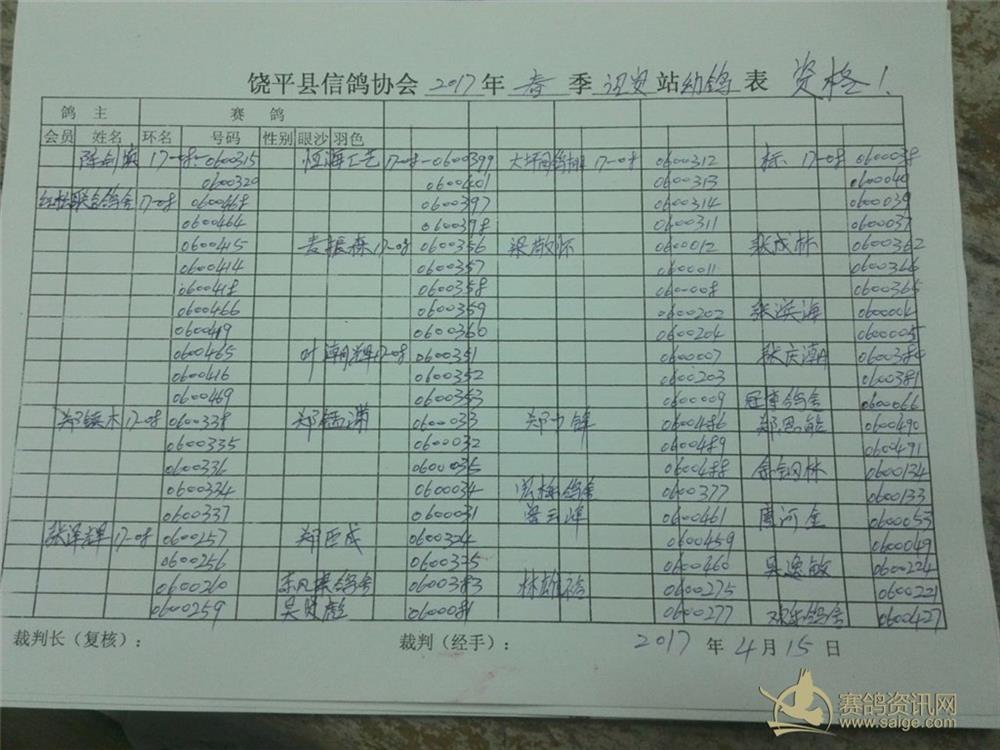 饶平县信鸽协会 2017 年 春 季 站 幼鸽 表 资格！
鸽 主 赛 鸽
会员 姓名 环名 号码 性别 眼沙 羽色
17-08-0600315 恒海工艺 17-08-0600399 17-08 0600312 标 17-08 0600038
0600320 0600401 0600313
联合鸽舍 17-08 0600468 0600397 0600314 0600039
0600464 0600398 0600311 0600037
0600415 麦振森 17-08 0600356 0600012 张成林 0600362
0600414 0600357 0600011 0600366
0600418 0600358 0600008 0600365
0600466 0600359 0600202 海
0600419 0600360 0600204 0600005
0600465 叶潮辉 17-08 0600351 0600007 张庆潮
0600416 0600352 0600203 0600381
0600469 0600353 0600009 鸽舍 0600066
郑镇木 17-08 0600338 郑 0600033 郑 0600486 郑思敏 0600490
0600335 0600032 0600489 0600491
0600336 0600035 0600488 林 0600134
0600334 0600034 鸽舍 0600377 0600133
0600337 0600031 0600461 周河金 0600053
张泽辉 17-08 0600257 郑 成 0600324 0600459 0600049
0600256 0600325 0600460 吴逸敏 0600224
0600260 鸽舍 0600383 林雄 0600275 0600221
0600259 吴 0600081 0600277 欢乐鸽舍 0600427
裁判长（复核）： 裁判（经手）： 2017 年 4 月 15 日
赛鸽资讯网
www.saige.com